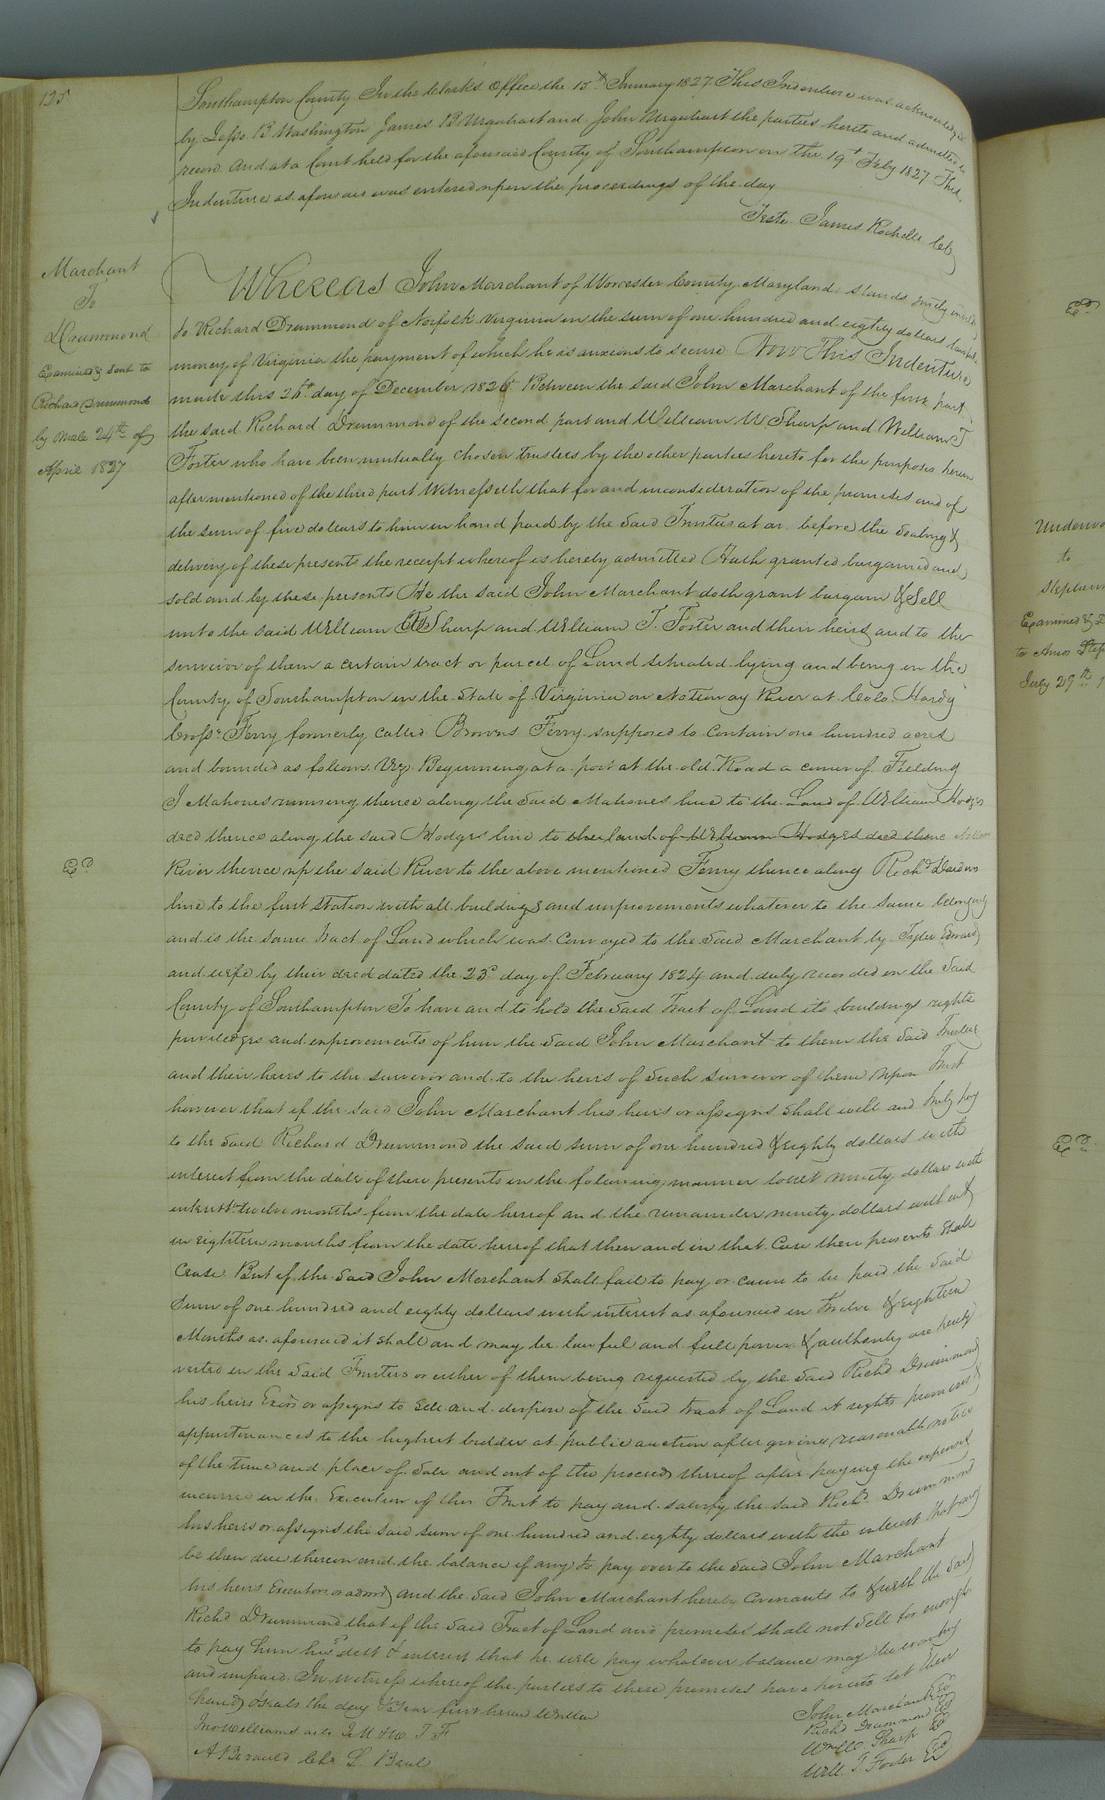 125
Southampton County In the Clerk's Office the 15th January 1827 This Indenture was acknowledged
by B. Washington James B Urquhart and John Urquhart the parties hereto and admitted to
record And at a Court held for the aforesaid County of Southampton on the 19th Feby 1827 This
Indenture as aforesaid was entered upon the proceedings of the day
Teste James Rochelle
Marchant
To
Drummond
Examined & sent to
Richard Drummond
by Male 24th of
April 1827
Whereas John Marchant of Worcester County Maryland stands justly
to Richard Drummond of Norfolk Virginia in the sum of one hundred and eighty dollars lawful
money of Virginia the payment of which he is anxious to secure Now This Indenture
made this 26th day of December 1826 Between the said John Marchant of the first part
the said Richard Drummond of the second part and William W Sharp and William T
Foster who have been mutually chosen trustees by the other parties hereto for the purposes herein
after mentioned of the third part Witnesseth that for and in consideration of the premises and of
the sum of five dollars to him in hand paid by the said Trustees at or before the sealing &
delivery of these presents the receipt whereof is hereby admitted Hath granted bargained and
sold and by these presents He the said John Marchant doth grant bargain & Sell
unto the said William W Sharp and William T. Foster and their heirs and to the
survivor of them a certain tract or parcel of Land situated lying and being in the
County of Southampton in the State of Virginia on Notoway River at Colo. Hardy
Cross's Ferry formerly called Browns Ferry supposed to contain one hundred acres
and bounded as follows Viz Beginning at a post at the old Road a corner of Fielding
J Mahones running thence along the said Mahones line to the Land of William Hodges
deed thence along the said Hodges line to the land of William Hodges deed thence
River thence up the said River to the above mentioned Ferry thence along Richd
line to the first station with all buildings and improvements whatever to the same belonging
and is the same tract of Land which was conveyed to the said Marchant by
and wife by their deed dated the 23d day of February 1824 and duly recorded in the said
County of Southampton To have and to hold the said Tract of Land its buildings rights
priviledges and improvements of him the said John Marchant to them the said Trustees
and their heirs to the survivor and to the heirs of such survivor of them Upon Trust
however that if the said John Marchant his heirs or assigns shall well and truly pay
to the said Richard Drummond the said sum of one hundred & eighty dollars with
interest from the date of these presents in the following manner towit ninety dollars with
interest twelve months from the date hereof and the remainder ninety dollars with int
in eighteen months from the date hereof that then and in that case these presents shall
Cease But if the said John Marchant shall fail to pay or cause to be paid the said
sum of one hundred and eighty dollars with interest as aforesaid in Twelve & eighteen
Months as aforesaid it shall and may be lawful and full power & authority are hereby
vested in the said Trustees or either of them being requested by the said Richd Drummond
his heirs Exors or assigns to sell and dispose of the said tract of Land it rights premises &
appurtenances to the highest bidder at public auction after giving reasonable notice
of the time and place of sale and out of the proceeds thereof after paying the expenses
incurred in the Execution of this Trust to pay and satisfy the said Richd Drummond
his heirs or assigns the said sum of one hundred and eighty dollars with the interest that may
be then due thereon and the balance if any to pay over to the said John Marchant
his heirs Executors or admrs and the said John Marchant hereby Covenants to & with the said
Richd Drummond that if the said Tract of Land and premises shall not sell for enough
to pay him his debt & interest that he will pay whatever balance may be wanting
and unpaid. In witness whereof the parties to these premises have hereunto set their
hands & seals the day & Year first herein written
Jno Williams as to J M & W T F
John Marchant
Richd Drummond
Wm W Sharp
Will. T. Foster
to
Examined &
July 29th